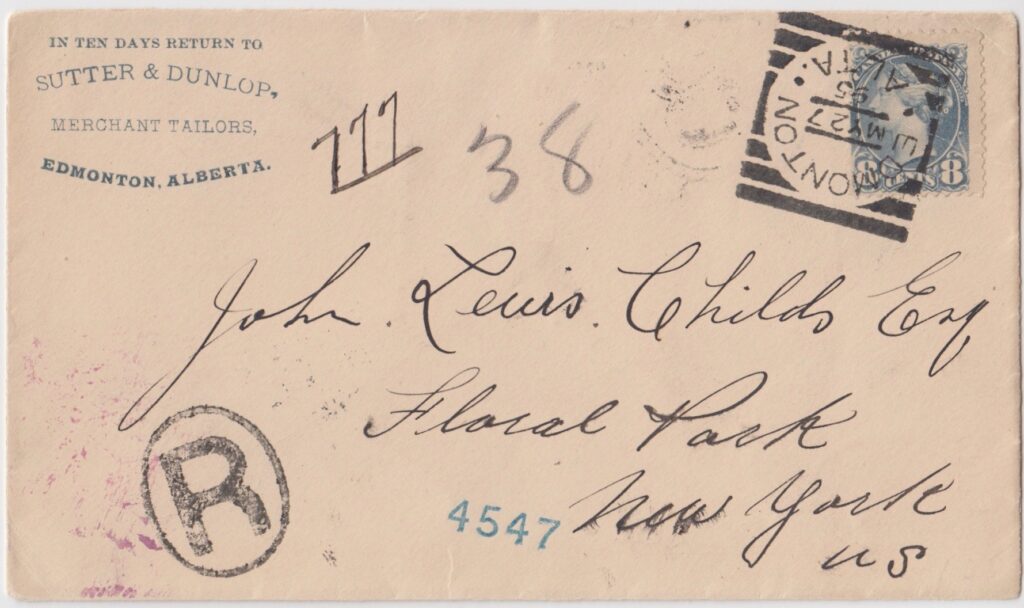 IN TEN DAYS RETURN TO
SUTTER & DUNLOP,
MERCHANT TAILORS,
EDMONTON, ALBERTA.
777
38
MONTON
ALTA.
MY 27
95
8 CENTS 8
John Lewis Childs Esq
Floral Park
New York
US
R
4547